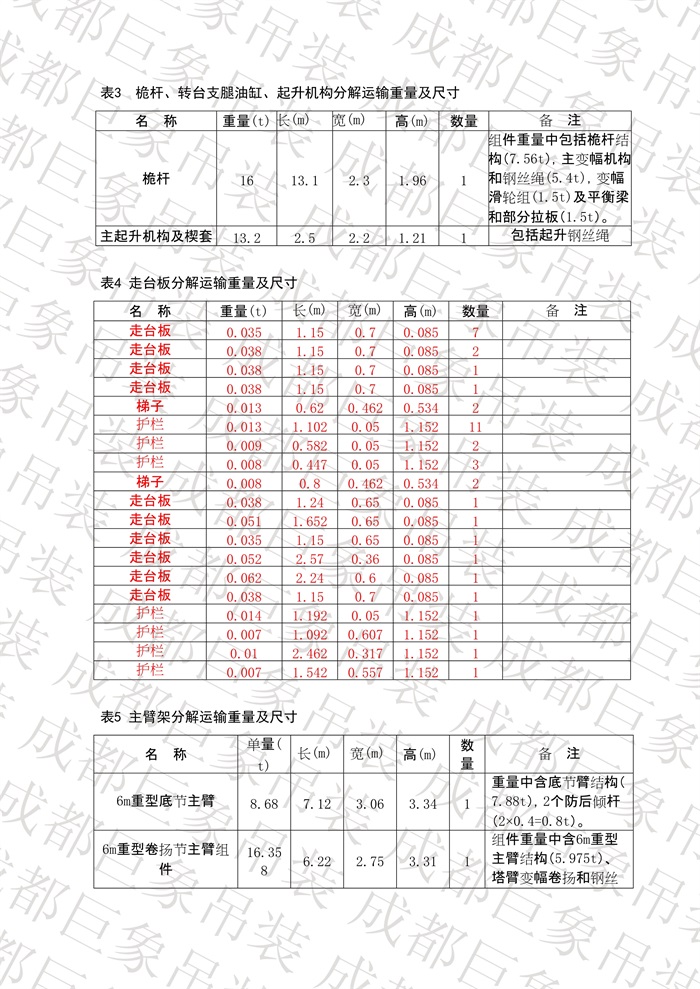 表3 桅杆、转台支腿油缸、起升机构分解运输重量及尺寸
名 称 重量(t) 长(m) 宽(m) 高(m) 数量 备 注
桅杆 16 13.1 2.3 1.96 1 组件重量中包括桅杆结
构(7.56t),主变幅机构
和钢丝绳(5.4t),变幅
滑轮组(1.5t)及平衡梁
和部分拉板(1.5t)。
主起升机构及楔套 13.2 2.5 2.2 1.21 1 包括起升钢丝绳
表4 走台板分解运输重量及尺寸
名 称 重量(t) 长(m) 宽(m) 高(m) 数量 备 注
走台板 0.035 1.15 0.7 0.085 7
走台板 0.038 1.15 0.7 0.085 2
走台板 0.038 1.15 0.7 0.085 1
走台板 0.038 1.15 0.7 0.085 1
梯子 0.013 0.62 0.462 0.534 2
护栏 0.013 1.102 0.05 1.152 11
护栏 0.009 0.582 0.05 1.152 2
护栏 0.008 0.447 0.05 1.152 3
梯子 0.008 0.8 0.462 0.534 2
走台板 0.038 1.24 0.65 0.085 1
走台板 0.051 1.652 0.65 0.085 1
走台板 0.035 1.15 0.65 0.085 1
走台板 0.052 2.57 0.36 0.085 1
走台板 0.062 2.24 0.6 0.085 1
走台板 0.038 1.15 0.7 0.085 1
护栏 0.014 1.192 0.05 1.152 1
护栏 0.007 1.092 0.607 1.152 1
护栏 0.01 2.462 0.317 1.152 1
护栏 0.007 1.542 0.557 1.152 1
表5 主臂架分解运输重量及尺寸
名 称 单量(
t) 长(m) 宽(m) 高(m) 数
量 备 注
6m重型底节主臂 8.68 7.12 3.06 3.34 1 重量中含底节臂结构(
7.88t),2个防后倾杆
(2×0.4=0.8t)。
6m重型卷扬节主臂组
件 16.35
8 6.22 2.75 3.31 1 组件重量中含6m重型
主臂结构(5.975t)、
塔臂变幅卷扬和钢丝
成都巨象吊装